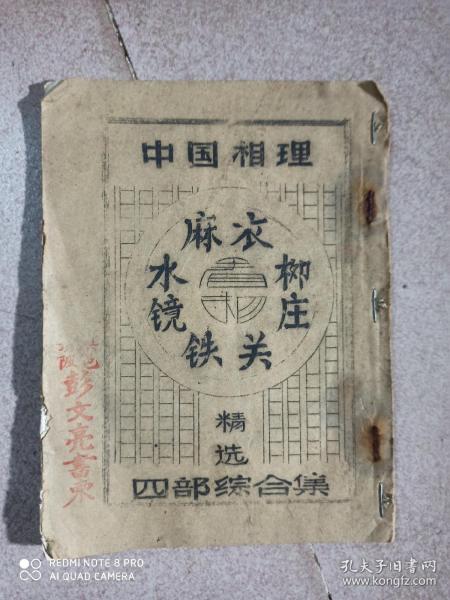 中国相理
麻衣
水镜
柳庄
铁关
精选
四部综合集
彭文亮書柬
REDMI NOTE 8 PRO
AI QUAD CAMERA
孔夫子旧书网
www.kongfz.com